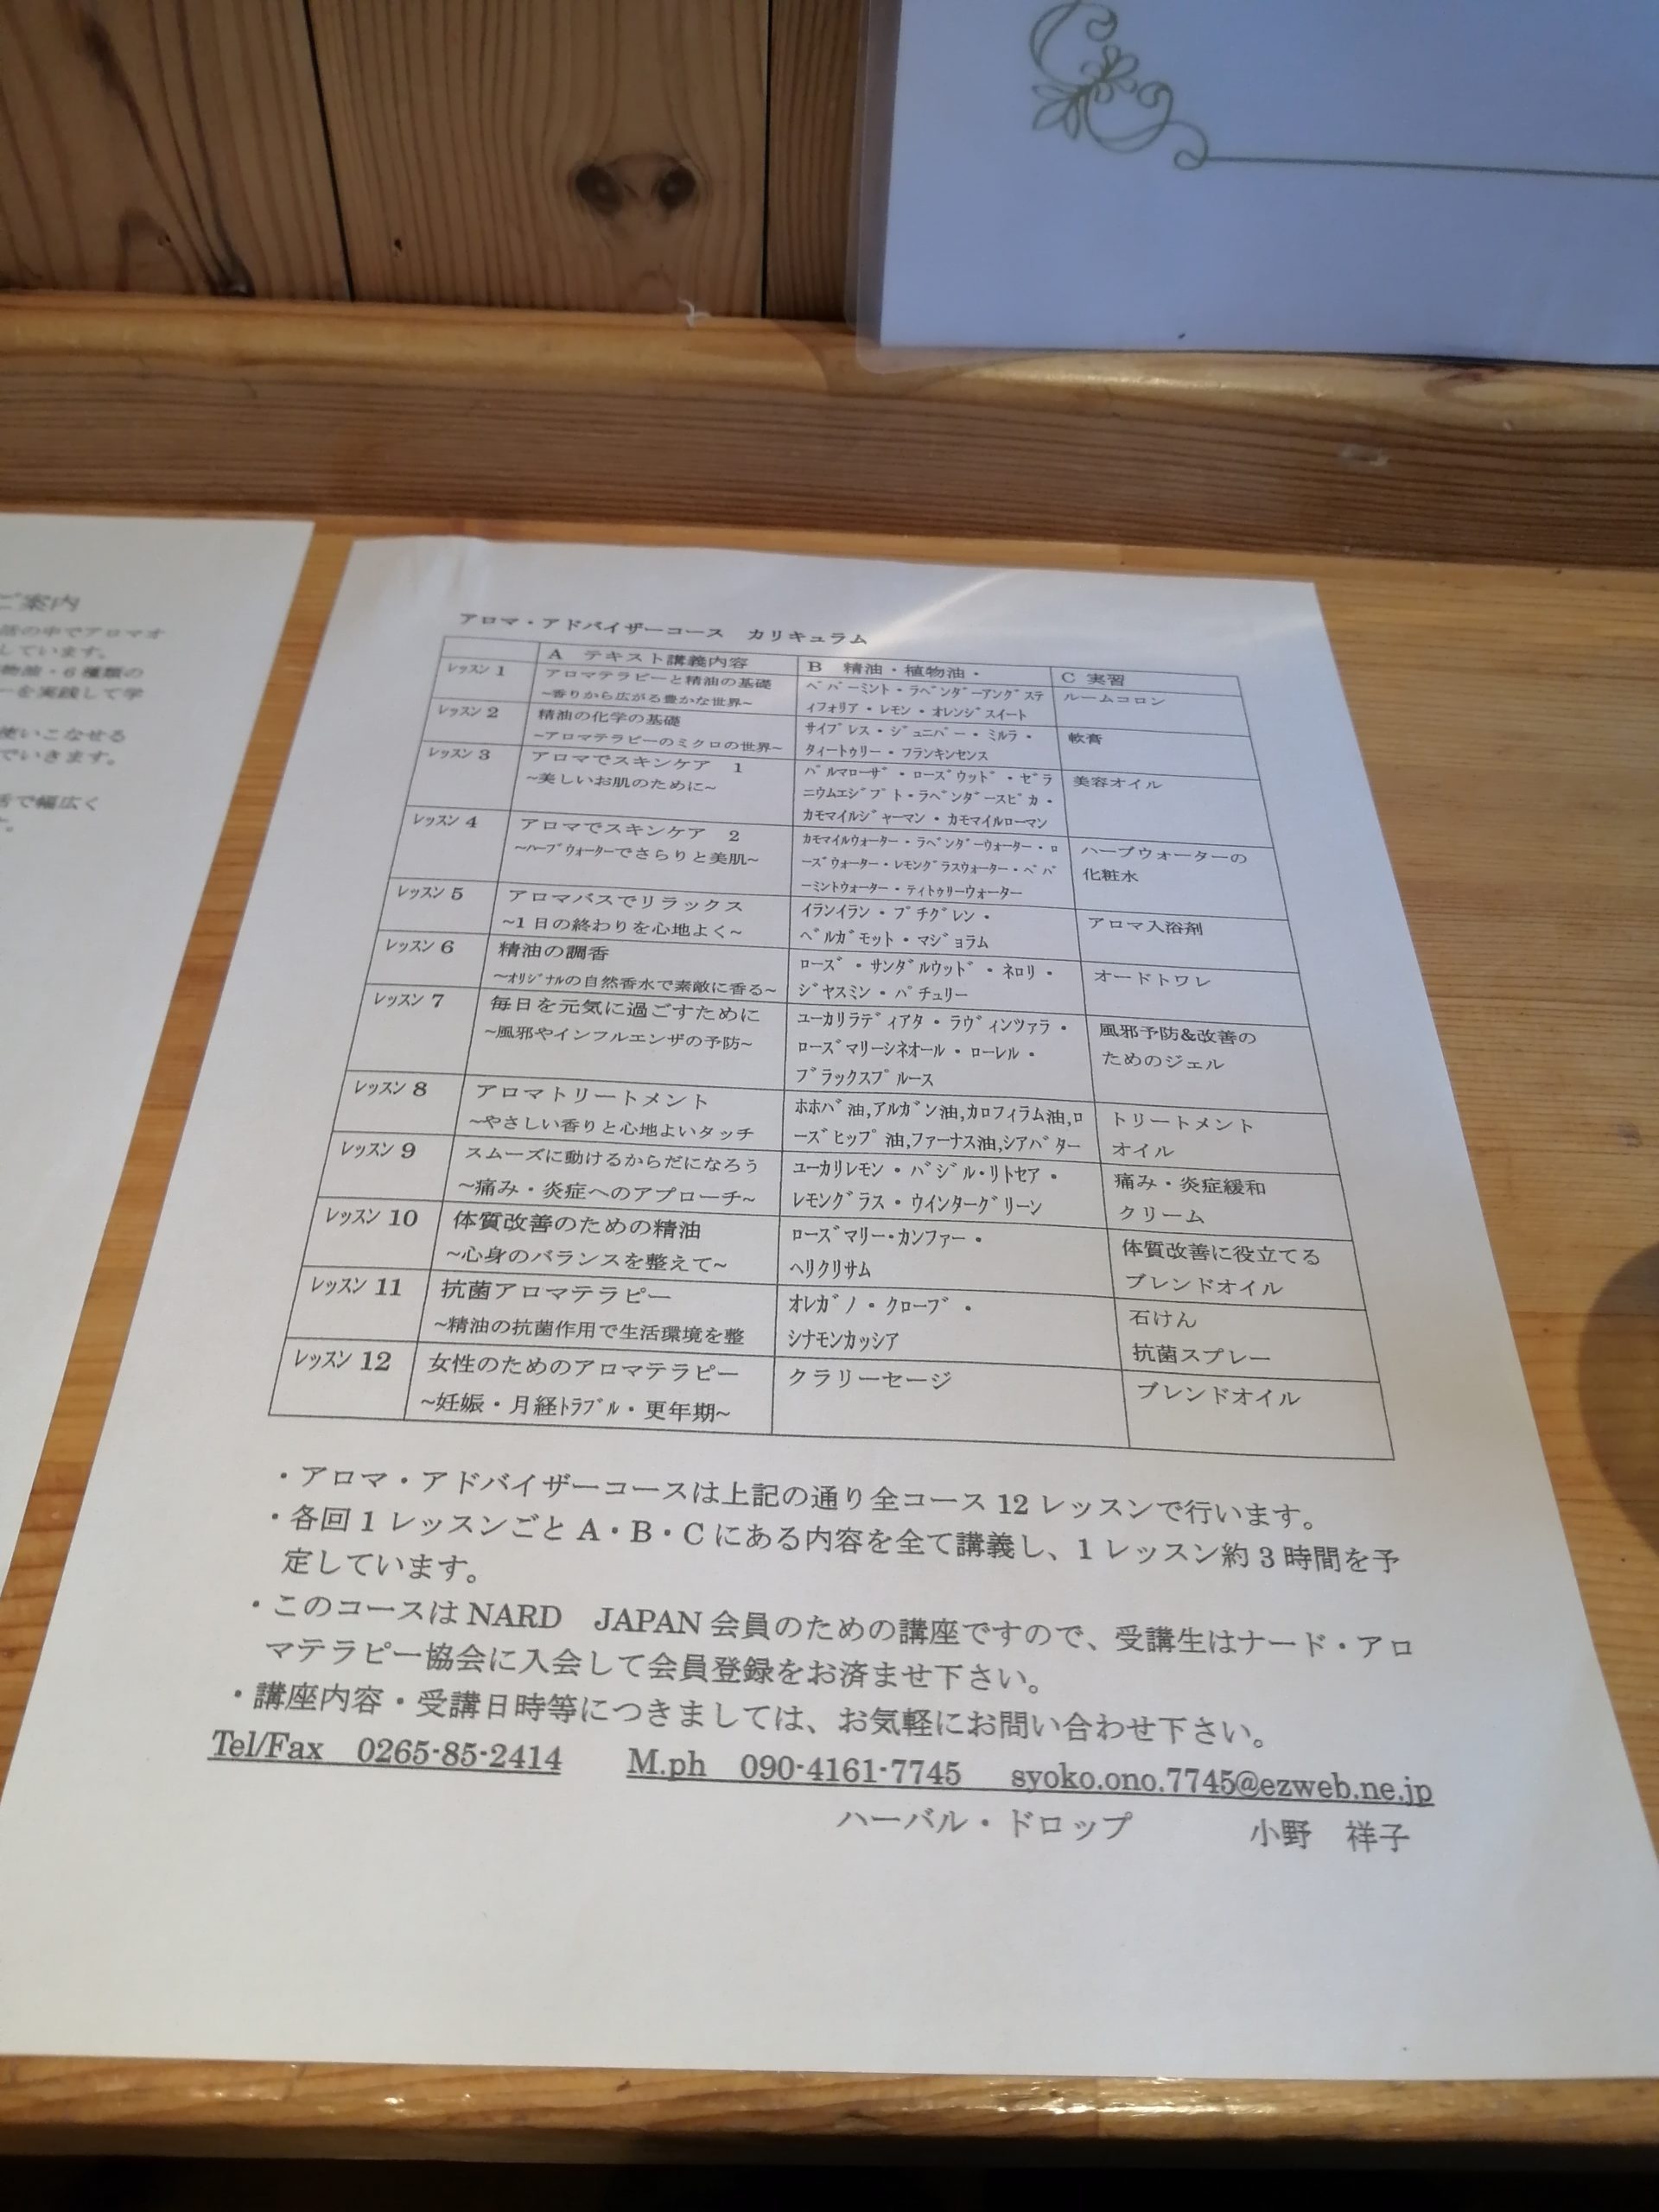 ご案内
活の中でアロマオ
しています。
物油・6種類の
ーを実践して学
使いこなせる
でいきます。
活で幅広く
す。
アロマ・アドバイザーコース　カリキュラム
A　テキスト講義内容　B　精油・植物油・　C　実習
レッスン 1　アロマテラピーと精油の基礎　ペパーミント・ラベンダーアングスティ　ルームコロン
~香りから広がる豊かな世界~　ィフォリア・レモン・オレンジスイート
レッスン 2　精油の化学の基礎　サイプレス・ジュニパー・ミルラ・　軟膏
~アロマテラピーのミクロの世界~　ティートゥリー・フランキンセンス
レッスン 3　アロマでスキンケア　1　パルマローザ・ローズウッド・ゼラ　美容オイル
~美しいお肌のために~　ニウムエジプト・ラベンダースピカ・
カモマイルジャーマン・カモマイルローマン
レッスン 4　アロマでスキンケア　2　カモマイルウォーター・ラベンダーウォーター・ロ　ハーブウォーターの
~ハーブウォーターでさらりと美肌~　ーズウォーター・レモングラスウォーター・ペパ　化粧水
ーミントウォーター・ティトゥリーウォーター
レッスン 5　アロマバスでリラックス　イランイラン・プチグレン・　アロマ入浴剤
~1日の終わりを心地よく~　ベルガモット・マジョラム
レッスン 6　精油の調香　ローズ・サンダルウッド・ネロリ・　オードトワレ
~オリジナルの自然香水で素敵に香る~　ジャスミン・パチュリー
レッスン 7　毎日を元気に過ごすために　ユーカリラディアタ・ラヴィンツァラ・　風邪予防&改善の
~風邪やインフルエンザの予防~　ローズマリーシネオール・ローレル・　ためのジェル
ブラックスプルース
レッスン 8　アロマトリートメント　ホホバ油,アルガン油,カロフィラム油,ロ　トリートメント
~やさしい香りと心地よいタッチ　ーズヒップ油,ファーナス油,シアバター　オイル
レッスン 9　スムーズに動けるからだになろう　ユーカリレモン・バジル・リトセア・　痛み・炎症緩和
~痛み・炎症へのアプローチ~　レモングラス・ウインターグリーン　クリーム
レッスン 10　体質改善のための精油　ローズマリー・カンファー・　体質改善に役立てる
~心身のバランスを整えて~　ヘリクリサム　ブレンドオイル
レッスン 11　抗菌アロマテラピー　オレガノ・クローブ・　石けん
~精油の抗菌作用で生活環境を整　シナモンカッシア　抗菌スプレー
レッスン 12　女性のためのアロマテラピー　クラリーセージ　ブレンドオイル
~妊娠・月経トラブル・更年期~
・アロマ・アドバイザーコースは上記の通り全コース 12 レッスンで行います。
・各回 1 レッスンごと A・B・C にある内容を全て講義し、1 レッスン約 3 時間を予
定しています。
・このコースは NARD　JAPAN 会員のための講座ですので、受講生はナード・アロ
マテラピー協会に入会して会員登録をお済ませ下さい。
・講座内容・受講日時等につきましては、お気軽にお問い合わせ下さい。
Tel/Fax　0265-85-2414　M.ph　090-4161-7745　syoko.ono.7745@ezweb.ne.jp
ハーバル・ドロップ　小野　祥子